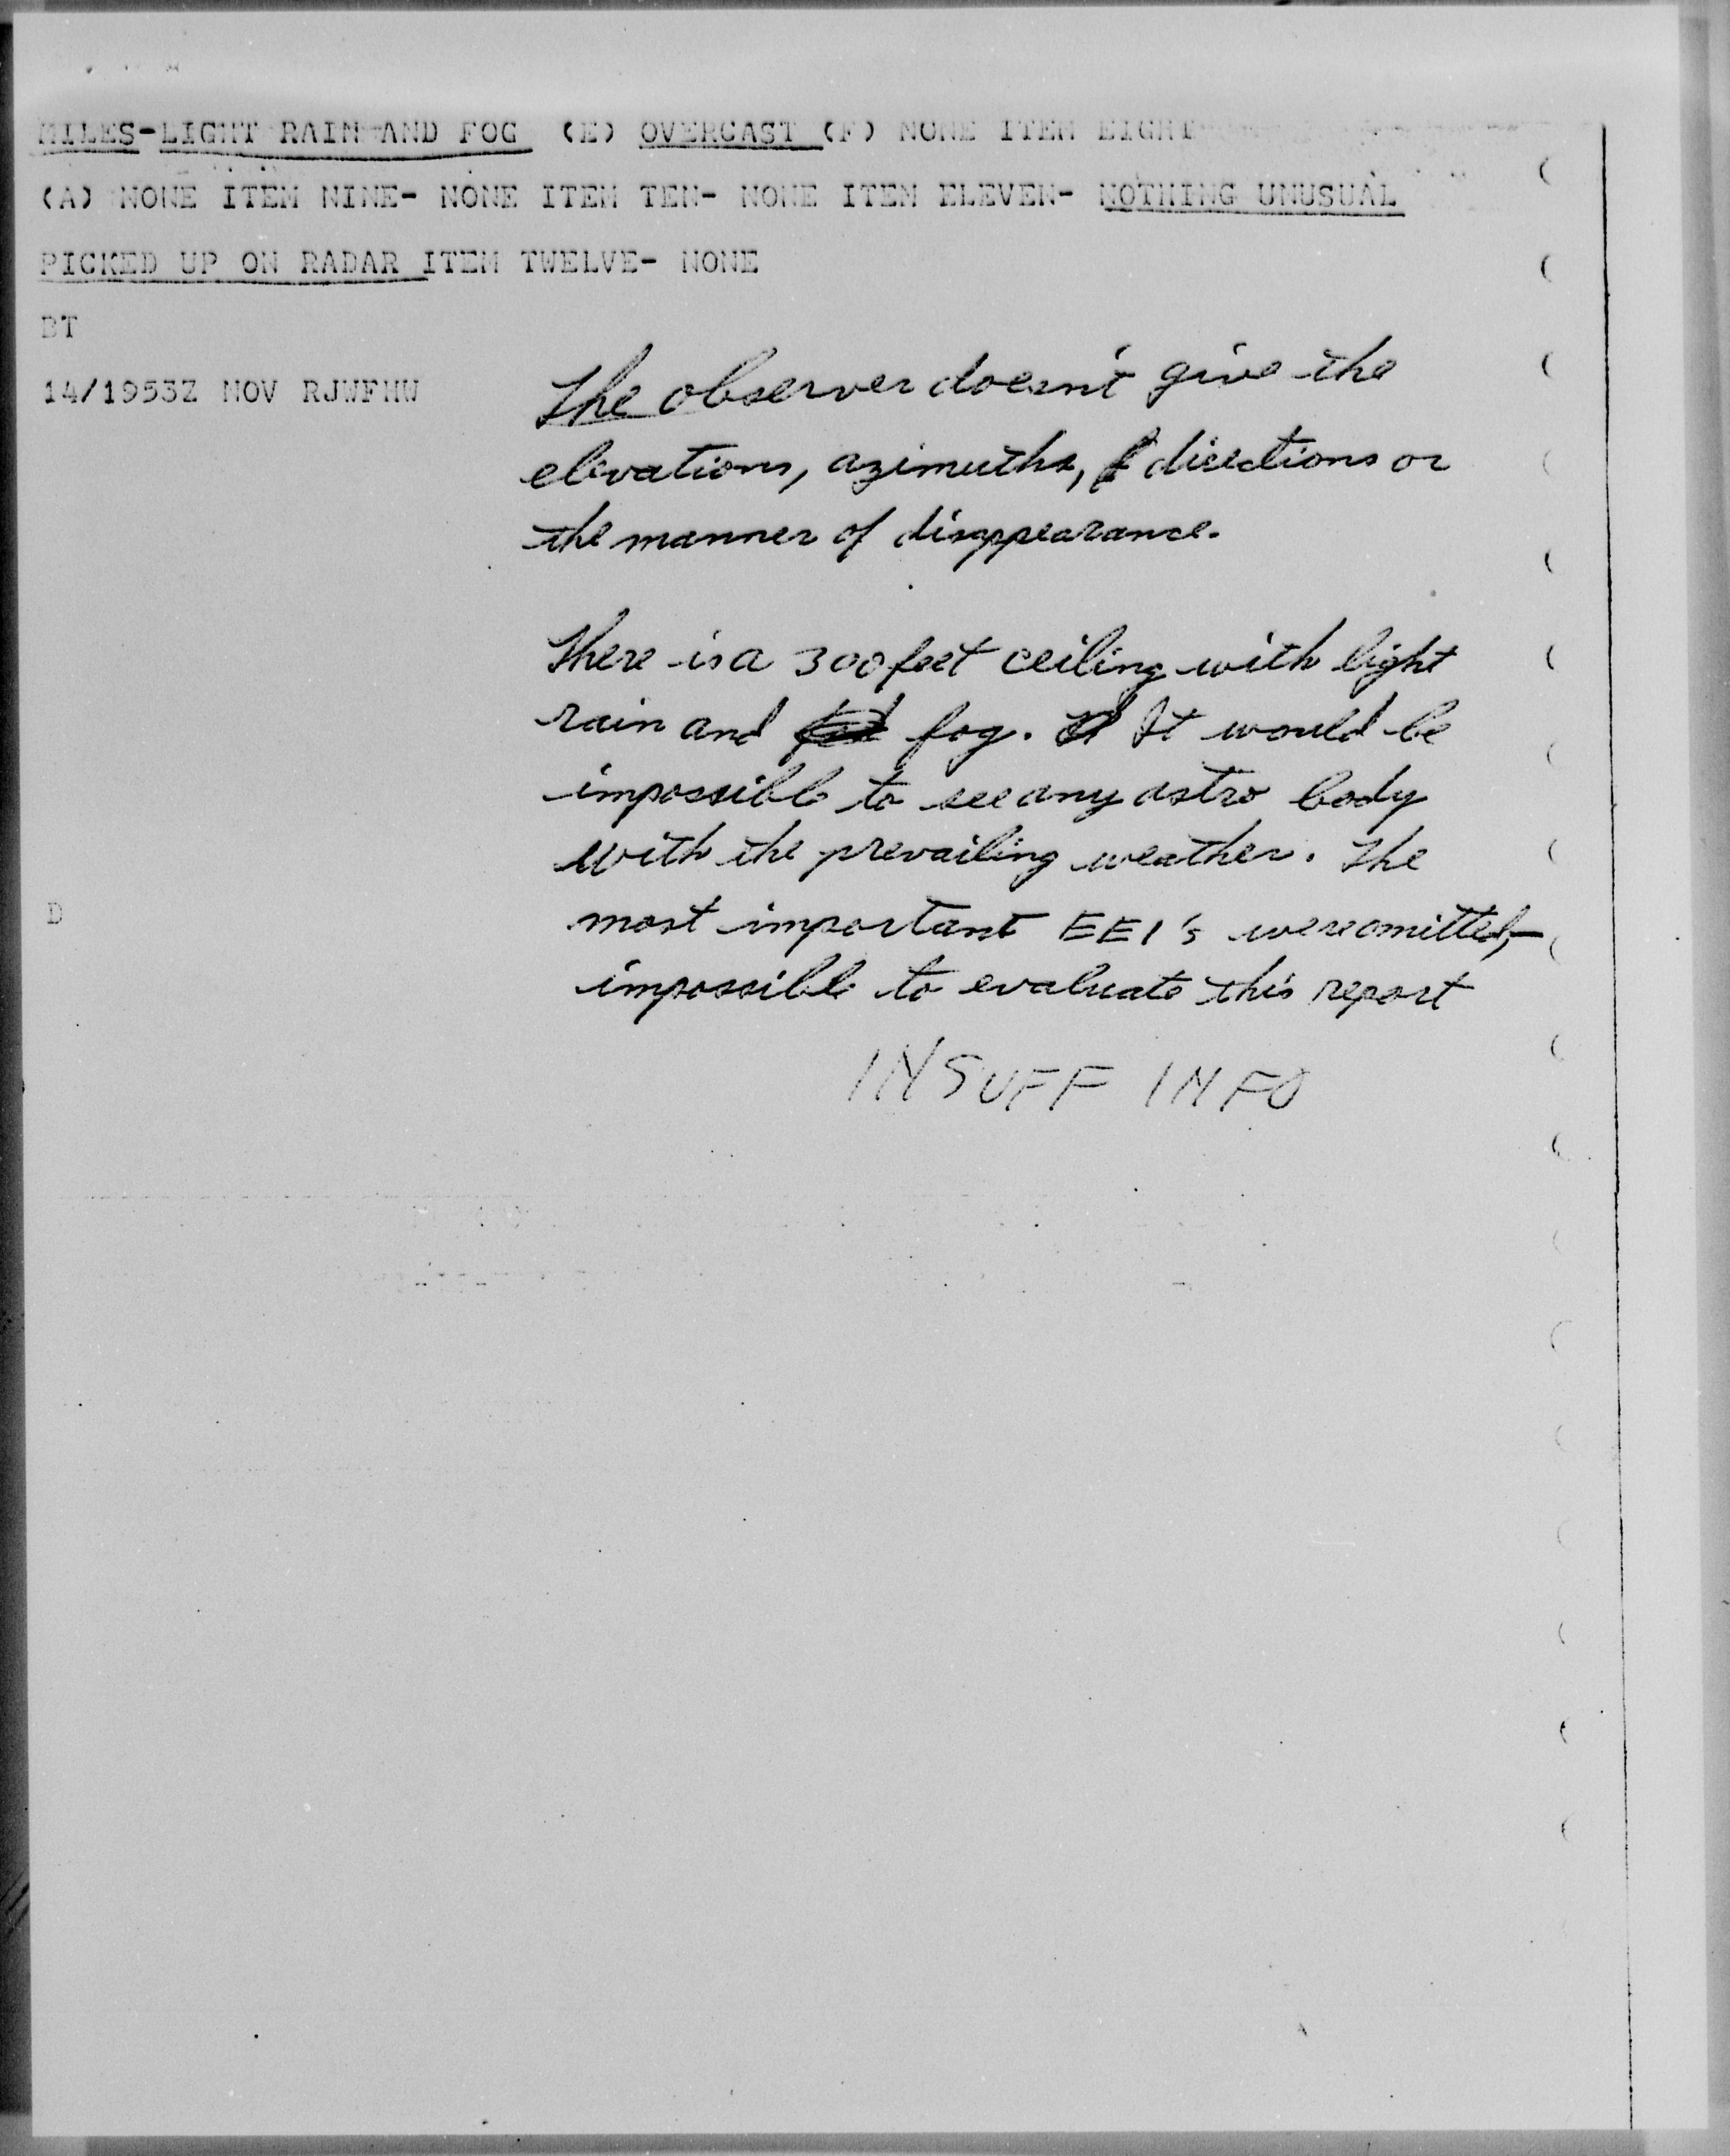 MILES-LIGHT RAIN AND FOG (E) OVERCAST (F) NONE ITEM EIGHT
(A) NONE ITEM NINE- NONE ITEM TEN- NONE ITEM ELEVEN- NOTHING UNUSUAL
PICKED UP ON RADAR ITEM TWELVE- NONE
BT
14/1953Z NOV RJWFMW
The observer doesn't give the
elevations, azimuths, directions or
the manner of disappearance.
There is a 300 feet ceiling with light
rain and fog. It would be
impossible to see any astro body
with the prevailing weather. The
most important EEI's were omitted,-
D
impossible to evaluate this report
INSUFF INFO